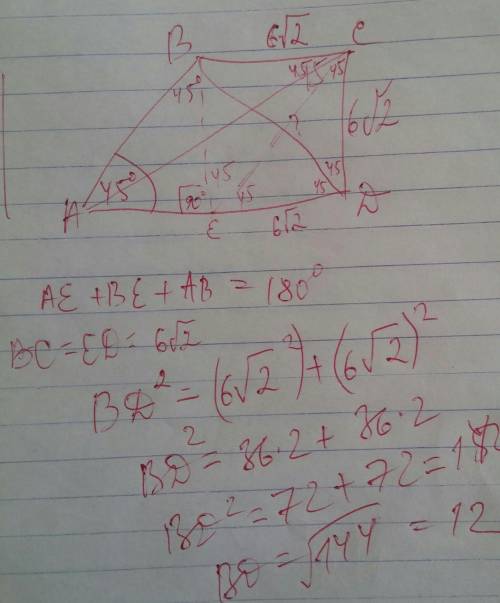 B 6√2 C
45° 45 45
? 6√2
45
45° 90° 45 45 45
A E 6√2 D
AE + BE + AB = 180°
BC = ED = 6√2
BD² = (6√2)² + (6√2)²
BD² = 36·2 + 36·2
BD² = 72 + 72 =
BD = √144 = 12